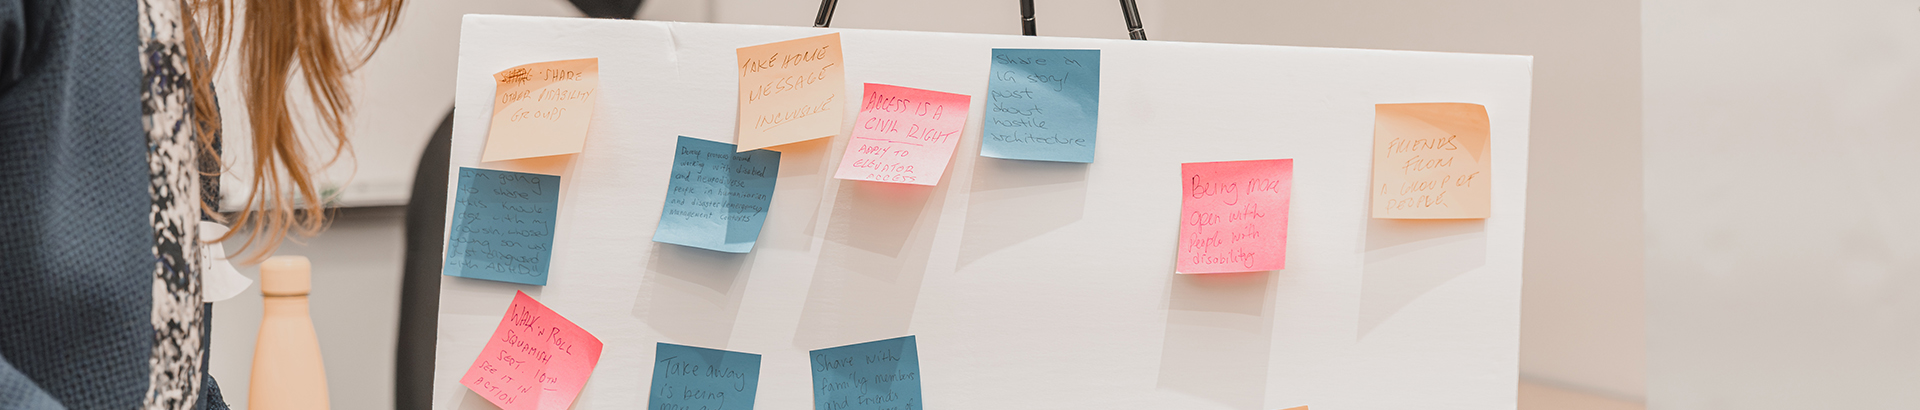 SHARE
OTHER DISABILITY
GROUPS
TAKE HOME
MESSAGE
INCLUSIVE
ACCESS IS A
CIVIL RIGHT
APPLY TO
ELEVATOR
ACCESS
Share in
IG story/
post
about
hostile
architecture
FRIENDS
FROM
A GROUP OF
PEOPLE
Being more
open with
People with
disability
working with disabled
and neurodiverse
people in humanitarian
and disaster
Management
I'm going
to share
this
with my
young son was
just diagnosed
with ADHD!!
WALK 'N ROLL
SQUAMISH
SEPT. 10TH
SEE IT IN
ACTION
Take away
is being
Share with
family members
and friends